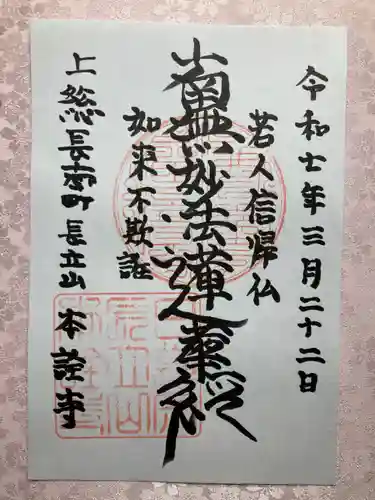 令和七年三月二十二日
若人信帰仏
南無妙法蓮華経
如来不欺誑
上総長南町長立山本詮寺